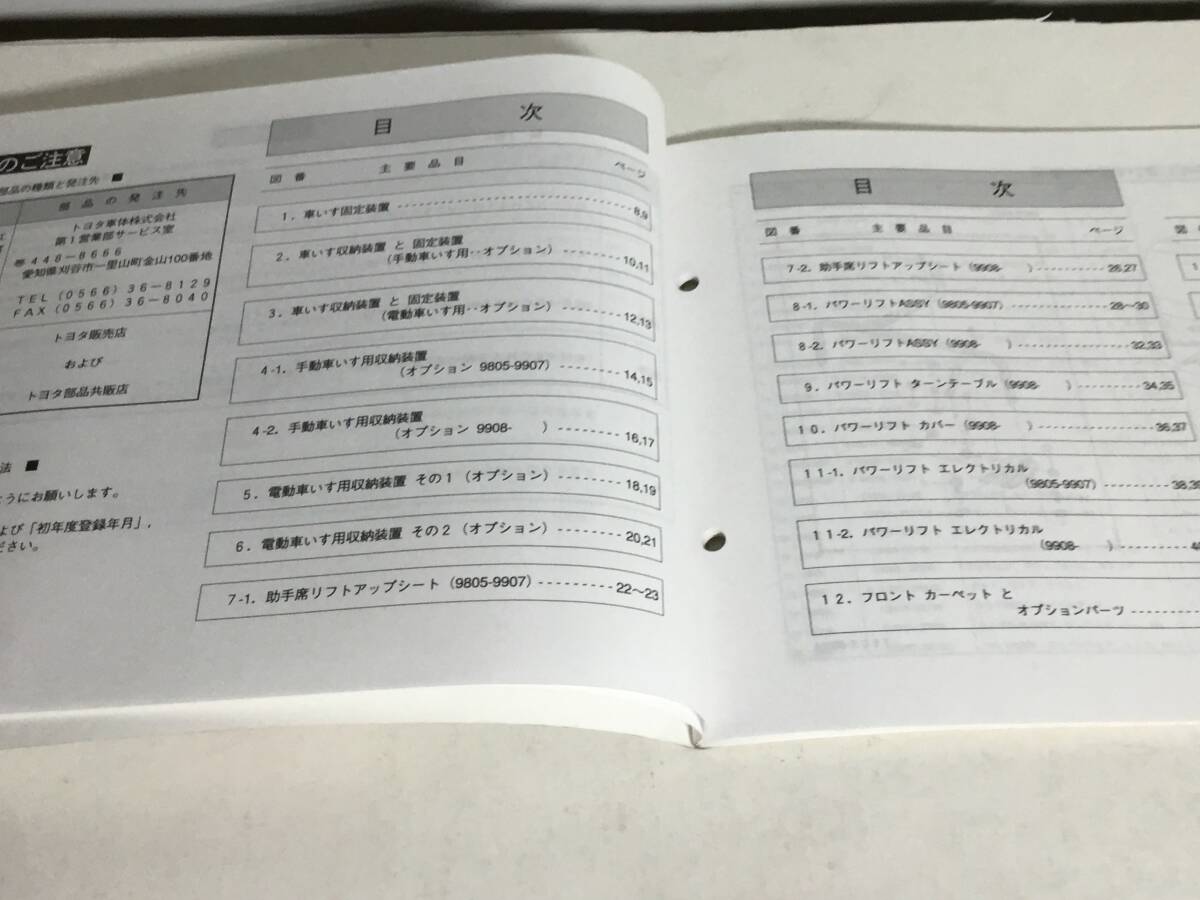 のご注意
部品の種類と発注先 ■
部品の発注先
トヨタ車体株式会社
第1営業部サービス室
〒448-8666
愛知県刈谷市一里山町金山100番地
TEL (0566) 36-8129
FAX (0566) 36-8040
トヨタ販売店
および
トヨタ部品共販店
法 ■
ようにお願いします。
よび「初年度登録年月」,
ださい。
目 次
図番 主要品目 ページ
1. 車いす固定装置 ---------- 8,9
2. 車いす収納装置 と 固定装置
(手動車いす用‥オプション) ---------- 10,11
3. 車いす収納装置 と 固定装置
(電動車いす用‥オプション) ---------- 12,13
4-1. 手動車いす用収納装置
(オプション 9805-9907) ---------- 14,15
4-2. 手動車いす用収納装置
(オプション 9908- ) ---------- 16,17
5. 電動車いす用収納装置 その1 (オプション) ---------- 18,19
6. 電動車いす用収納装置 その2 (オプション) ---------- 20,21
7-1. 助手席リフトアップシート (9805-9907) ---------- 22〜23
目 次
図番 主要品目 ページ
7-2. 助手席リフトアップシート (9908- ) ---------- 26,27
8-1. パワーリフトASSY (9805-9907) ---------- 28〜30
8-2. パワーリフトASSY (9908- ) ---------- 32,33
9. パワーリフト ターンテーブル (9908- ) ---------- 34,35
10. パワーリフト カバー (9908- ) ---------- 36,37
11-1. パワーリフト エレクトリカル
(9805-9907) ---------- 38,39
11-2. パワーリフト エレクトリカル
(9908- ) ----------
12. フロント カーペット と
オプションパーツ ----------
図
1